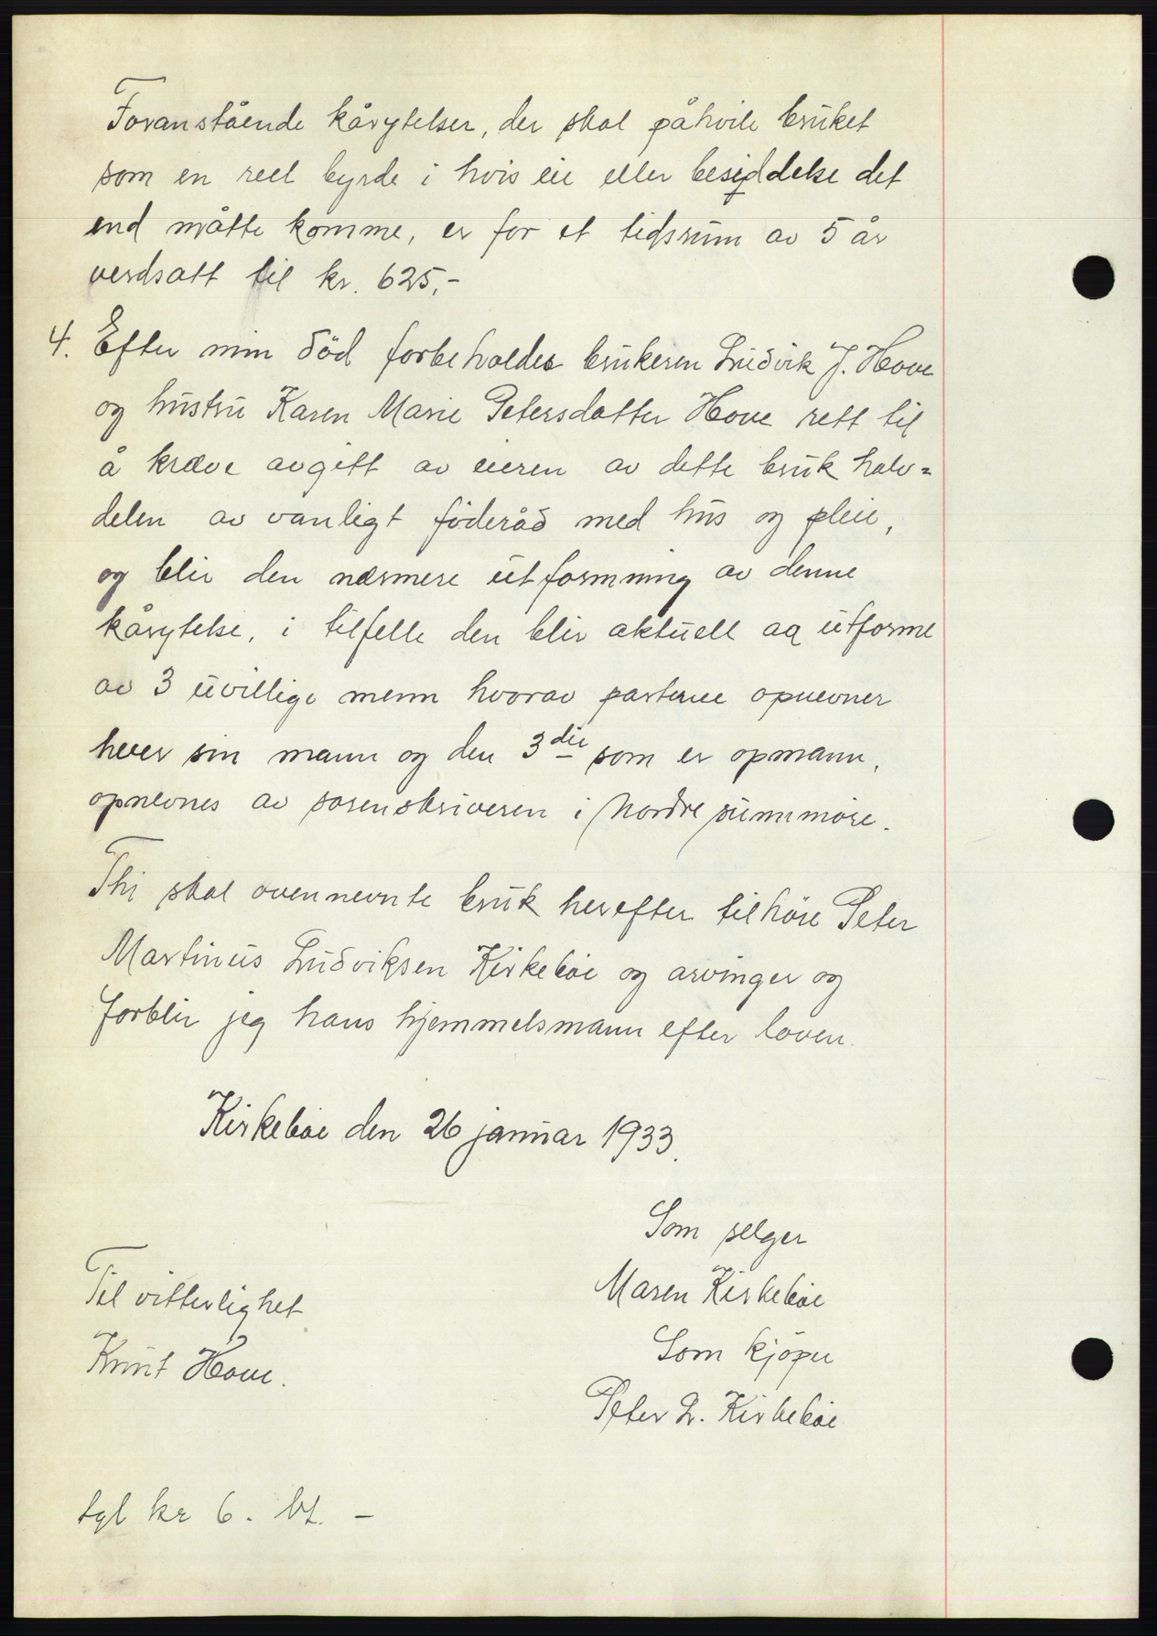 Foranstående kårytelser, der skal påhvile bruket
som en reel byrde i hvis eie eller besiddelse det
end måtte komme, er for et tidsrum av 5 år
verdsatt til kr. 625,-
4. Efter min död forbeholdes brukeren Ludvik J. Hove
og hustru Karen Marie Petersdatter Hove rett til
å kræve avgitt av eieren av dette bruk halv=
delen av vanligt föderåd med hus og pleie,
og blir den nærmere utformning av denne
kårytelse, i tilfelle den blir aktuell aa utforme
av 3 uvillige menn hvorav partene opnevner
hver sin mann og den 3die som er opmann,
opnevnes av sorenskriveren i Nordre sunnmöre.
Thi skal ovennevnte bruk herefter tilhöre Peter
Martinus Ludviksen Kirkeböe og arvinger og
forblir jeg hans hjemmelsmann efter loven.
Kirkeböe den 26 januar 1933.
Som selger
Til vitterlighet
Maren Kirkeböe
Knut Hove.
Som kjöper
Peter L. Kirkeböe
tgl kr 6. bt. -